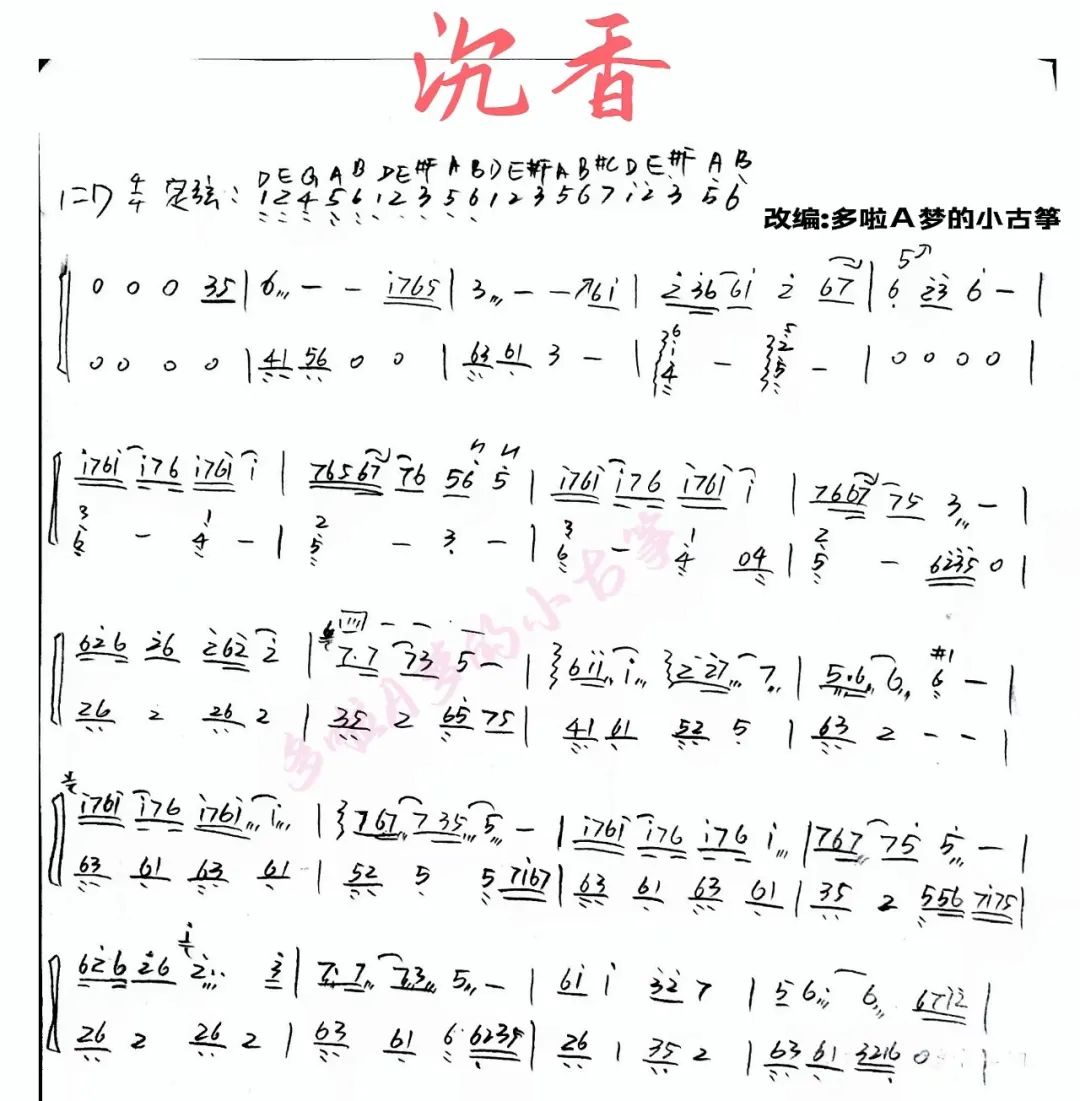 沉香
D E G A B D E #F A B D E #F A B #C D E #F A B
1=D 4/4 定弦: 1 2 4 5 6 1 2 3 5 6 1 2 3 5 6 7 i 2 3 5 6
改编:多啦A梦的小古筝
0 0 0 35 | 6 - - i765 | 3 - - 761 | 236 61 2 67 | 6 23 6 - |
0 0 0 0 | 41 56 0 0 | 63 61 3 - | 4 1 6 - 5 2 5 - | 0 0 0 0 |
i76i i76 i76i i | 76567 76 56 5 | i76i i76 i76i i | 7667 75 3 - |
3 6 - 1 4 - | 2 5 - 3 - | 3 6 - 1 4 04 | 2 5 - 6235 0 |
626 26 262 2 | 7·7 73 5 - | 6ii i 2·27 7 | 5·6 6 #1 6 - |
26 2 26 2 | 35 2 65 75 | 41 61 52 5 | 63 2 - - |
i76i i76 i76i i | 767 735 5 - | i76i i76 i76 i | 767 75 5 - |
63 61 63 61 | 52 5 5 7i67 | 63 61 63 61 | 35 2 556 7i75 |
626 26 2 3 | 7·7 73 5 - | 6i i 32 7 | 5 6 6 6712 |
26 2 26 2 | 63 61 6 6235 | 26 1 35 2 | 63 61 3216 0
多啦A梦的小古筝